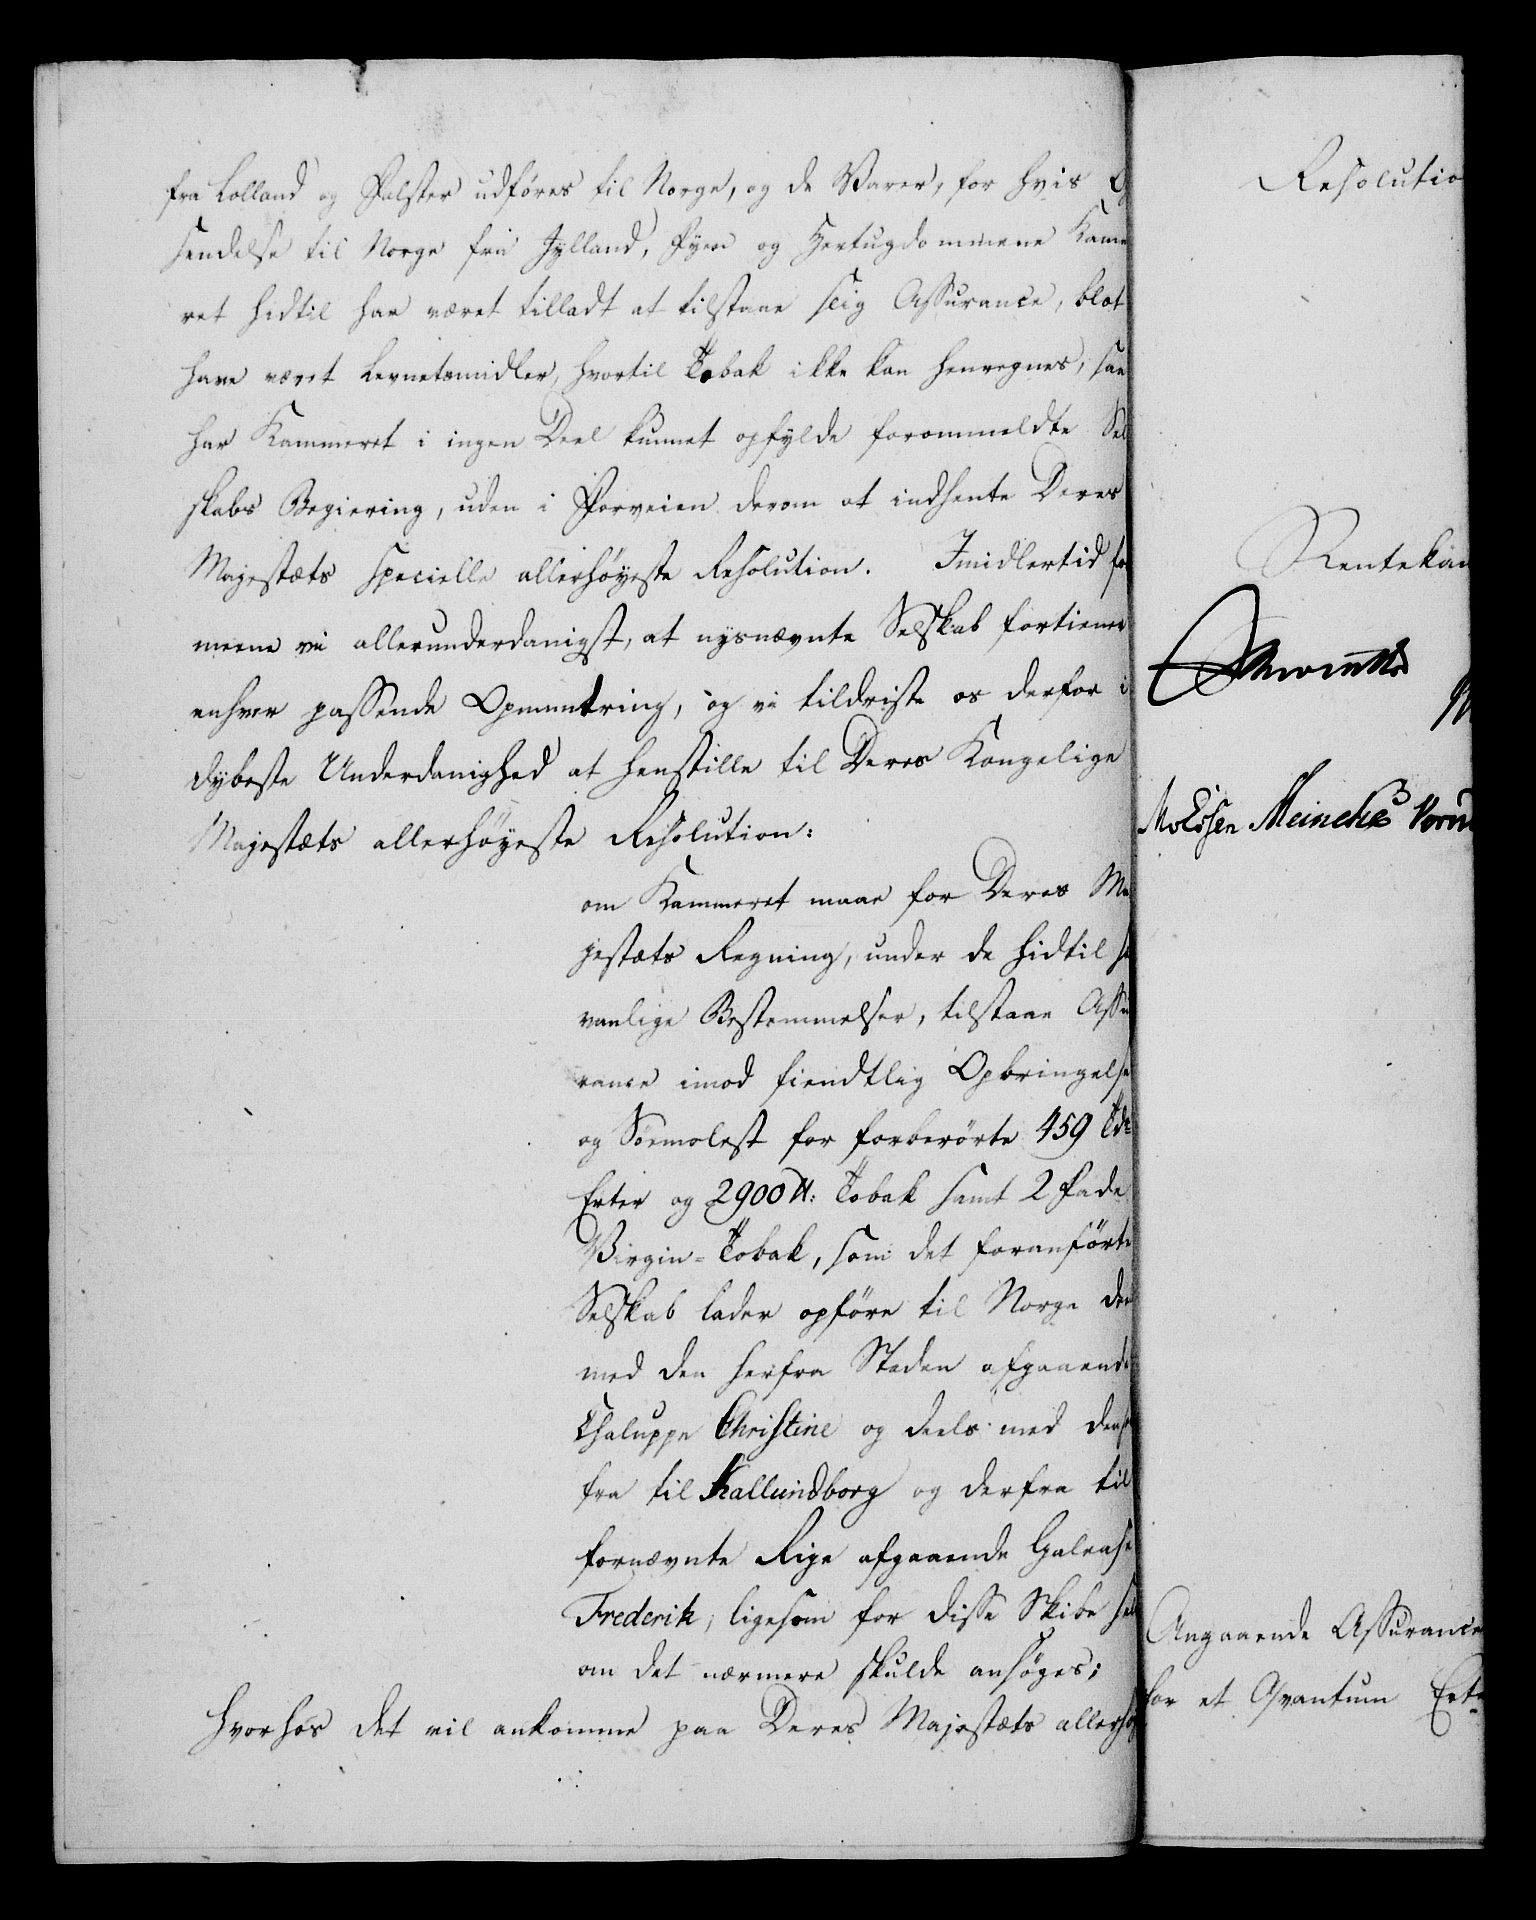 fra Lolland og Falster udføres til Norge, og de Varer, for hvis O
sendelse til Norge fra Jylland, Fyen og Hertugdommene Kame
ret hidtil har været tilladt at tilstaae slig Assurance, blot
have været Levnetsmidler, hvortil Tobak ikke kan henregnes, saa
har Kammeret i ingen Deel kunnet opfylde forommeldte Sel
skabs Begiering, uden i Forveien derom at indhente Deres
Majestæts specielle allerhøyeste Resolution. Imidlertid for
meene vi allerunderdanigst, at nysnævnte Selskab fortiener
enhver passende Opmuntring, og vi tildriste os derfor i
dybeste Underdanighed at henstille til Deres Kongelige
Majestæts allerhøyeste Resolution:
om Kammeret maae for Deres Ma
jestæts Regning, under de hidtil sæ
vanlige Bestemmelser, tilstaae Assu
rance imod fiendtlig Opbringelse
og Søemolest for forberørte 459 Tdr
Erter og 2900 ℔: Tobak samt 2 Fade
Virgin=Tobak, som det foranførte
Selskab lader opføre til Norge dee
med den herfra Staden afgaaende
Chaluppe Christine og deels med den her
fra til Kallundborg og derfra til
fornævnte Rige afgaaende Galease
Frederik, ligesom for disse Skibe sel
om det nærmere skulde ansøges;
hvorhos det vil ankomme paa Deres Majestæts allerhøy
Resolutio
Rentekam
Meinche
Angaaende Assurance
for et Qvantum Erte